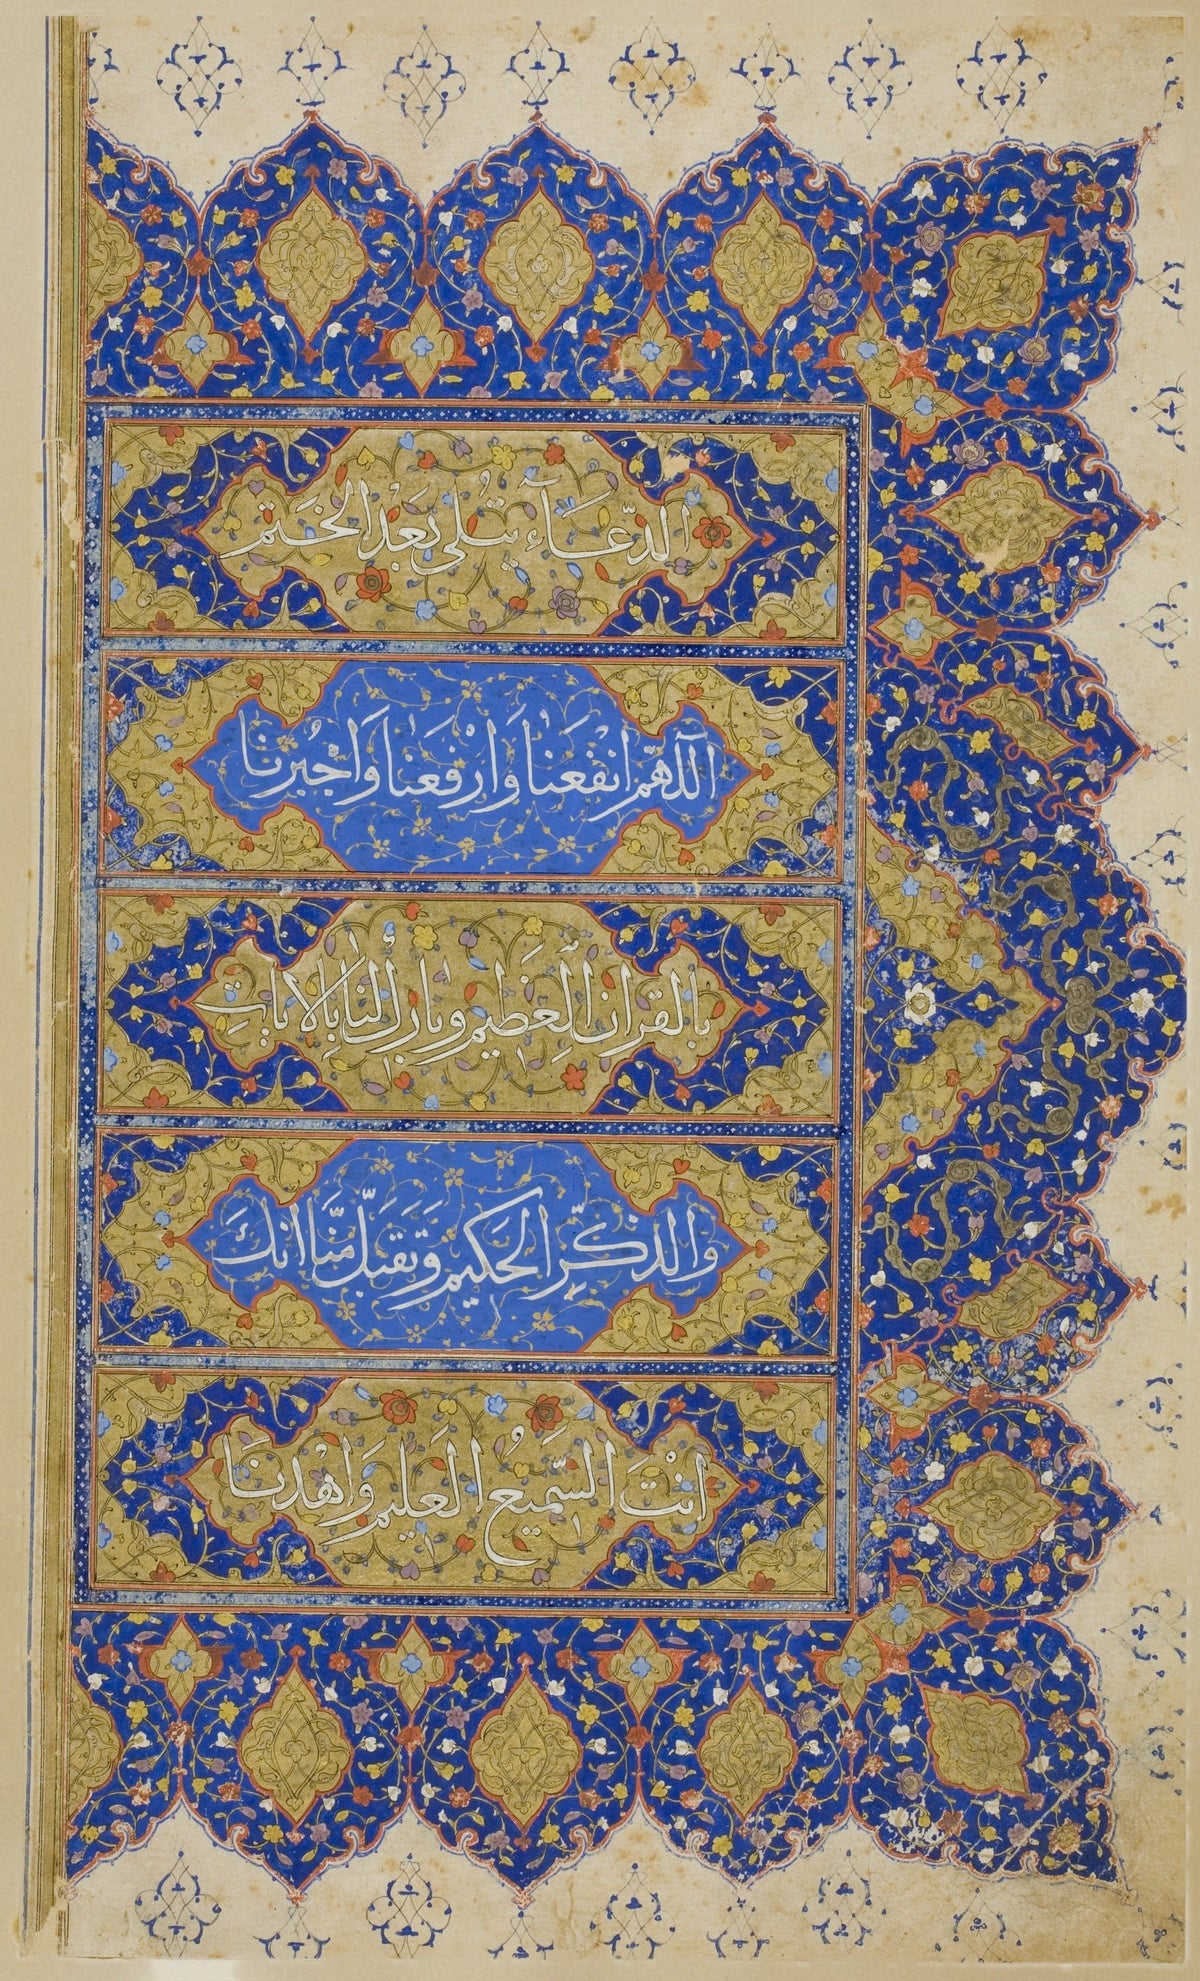 الدّعَآء يتُلى بَعْد الختم
اَللّهمّ انفَعَنا وَارْفعَنا وَاجْبُرنا
بالقرانِ العَظيم وبارك لنا بالاياتِ
والذكّرِ الحَكيم وَتقَبّل منّا انكَ
انتَ السّميعُ العَليم وَاهْدنَا